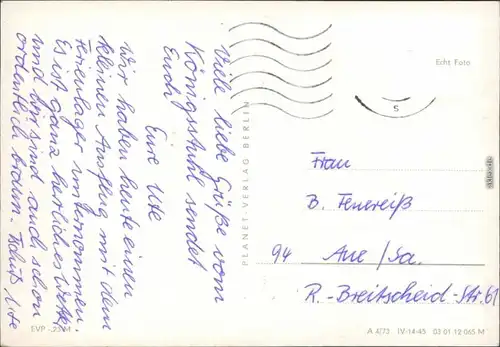 Viele liebe Grüße vom
Königsstuhl sendet
Euch
Eure Ute
Wir haben heute einen
kleinen Ausflug mit dem
Ferienlager unternommen.
Es ist ganz herrliches Wetter
und wir sind auch schon
ordentlich braun. Tschüß Ute
PLANET-VERLAG BERLIN
Echt Foto
Frau
B. Feuereiß
94 Aue/Sa.
R.-Breitscheid-Str. 61
EVP -,25 M
A 4273 IV-14-45 03 01 12 065 M